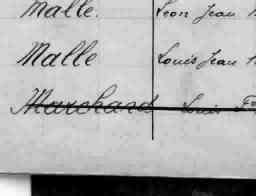 Malle. Léon Jean
Malle Louis Jean
Marchand Louis